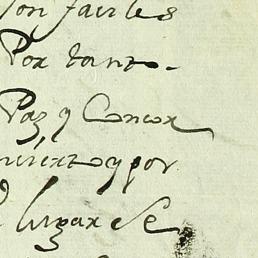 son faciles
Por tanto
Paz y Concor
y por
lugar de